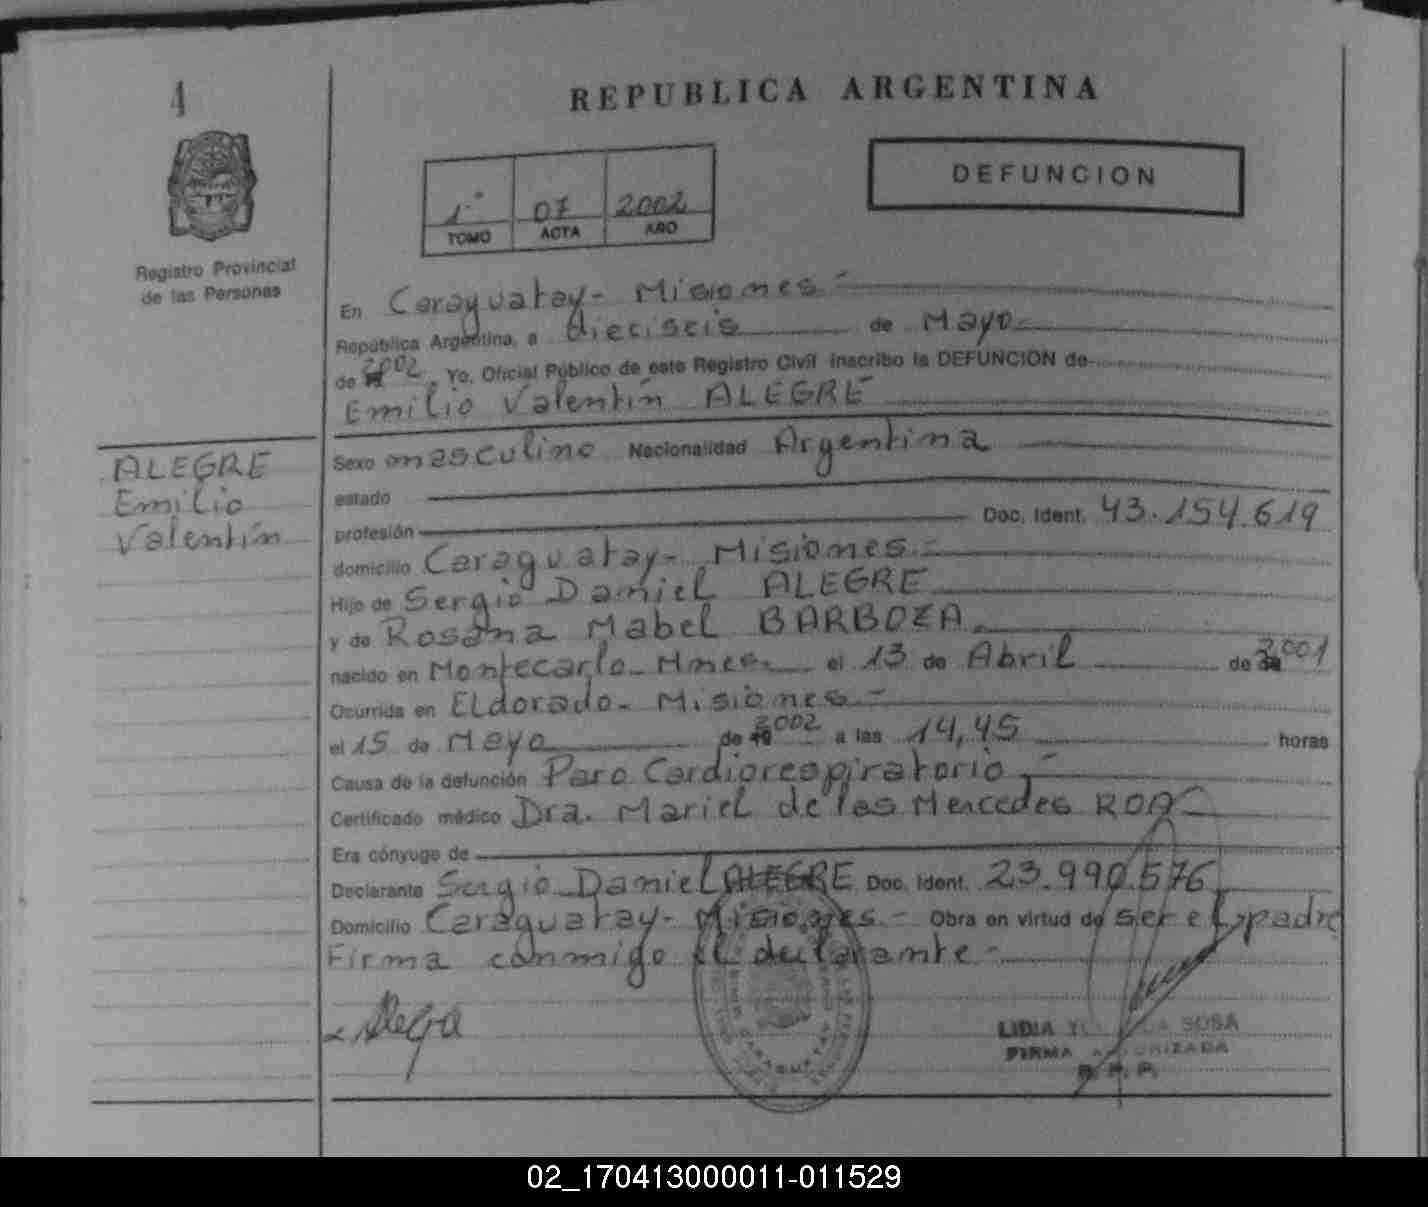 4
REPUBLICA ARGENTINA
DEFUNCION
1º 07 2002
TOMO ACTA AÑO
Registro Provincial
de las Personas
En Caraguatay- Misiones-
República Argentina, a dieciseis de Mayo-
de 2002, Yo, Oficial Público de este Registro Civil inscribo la DEFUNCIÓN de
Emilio Valentín ALEGRE
ALEGRE
Emilio
Valentín
Sexo masculino Nacionalidad Argentina
estado
profesión Doc. Ident. 43.154.619
domicilio Caraguatay- Misiones.-
Hijo de Sergio Daniel ALEGRE
y de Rosana Mabel BARBOZA.
nacido en Montecarlo- Mnes. el 13 de Abril de 2001
Ocurrida en ELdorado- Misiones-
el 15 de Mayo de 2002 a las 14,45 horas
Causa de la defunción Paro Cardiorespiratorio,-
Certificado médico Dra. Mariel de las Mercedes ROA-
Era cónyuge de
Declarante Sergio Daniel ALEGRE Doc. Ident. 23.990.576
Domicilio Caraguatay- Misiones.- Obra en virtud de ser el padre
Firma conmigo el declarante-
LIDIA SOSA
FIRMA AUTORIZADA
R. P. P.
02_170413000011-011529